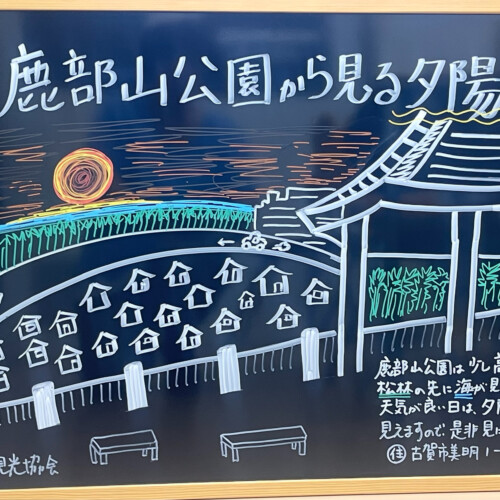 鹿部山公園から見る夕陽
鹿部山公園は少し高
松林の先に海が見
天気が良い日は、夕陽
見えますので、是非見に
住 古賀市美明1-
観光協会